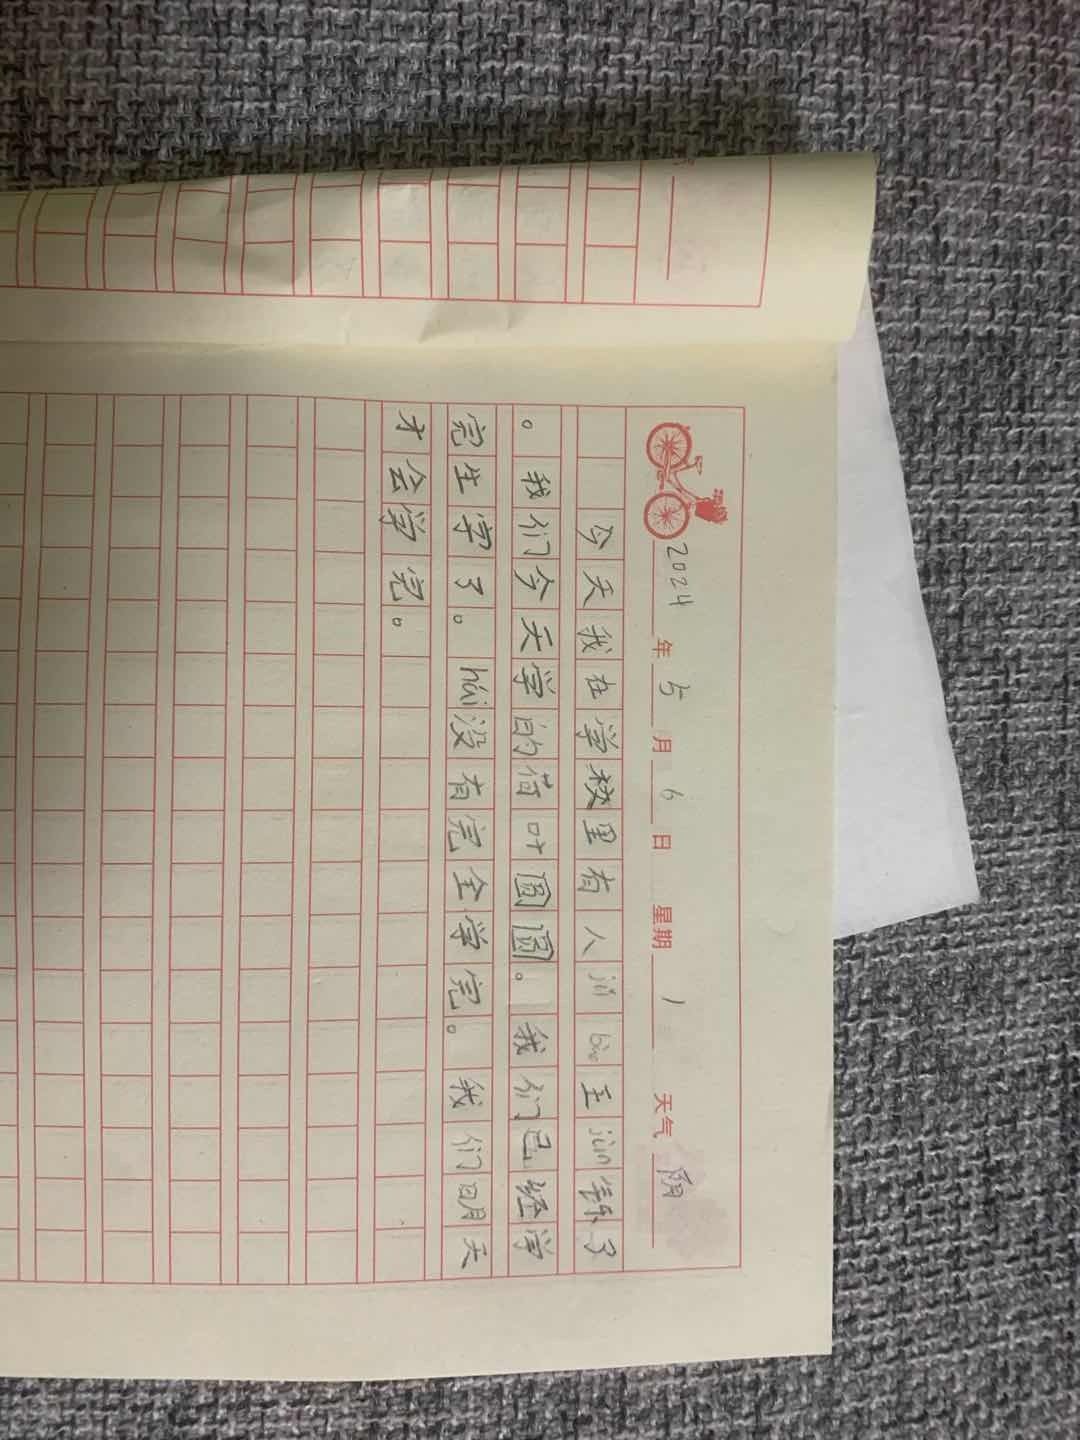 2024年5月6日 星期1 天气阴
今天我在学校里有人王了
。我们今天学的荷叶圆圆。我们已经学
完生字了。hái没有完全学完。我们明天
才会学完。